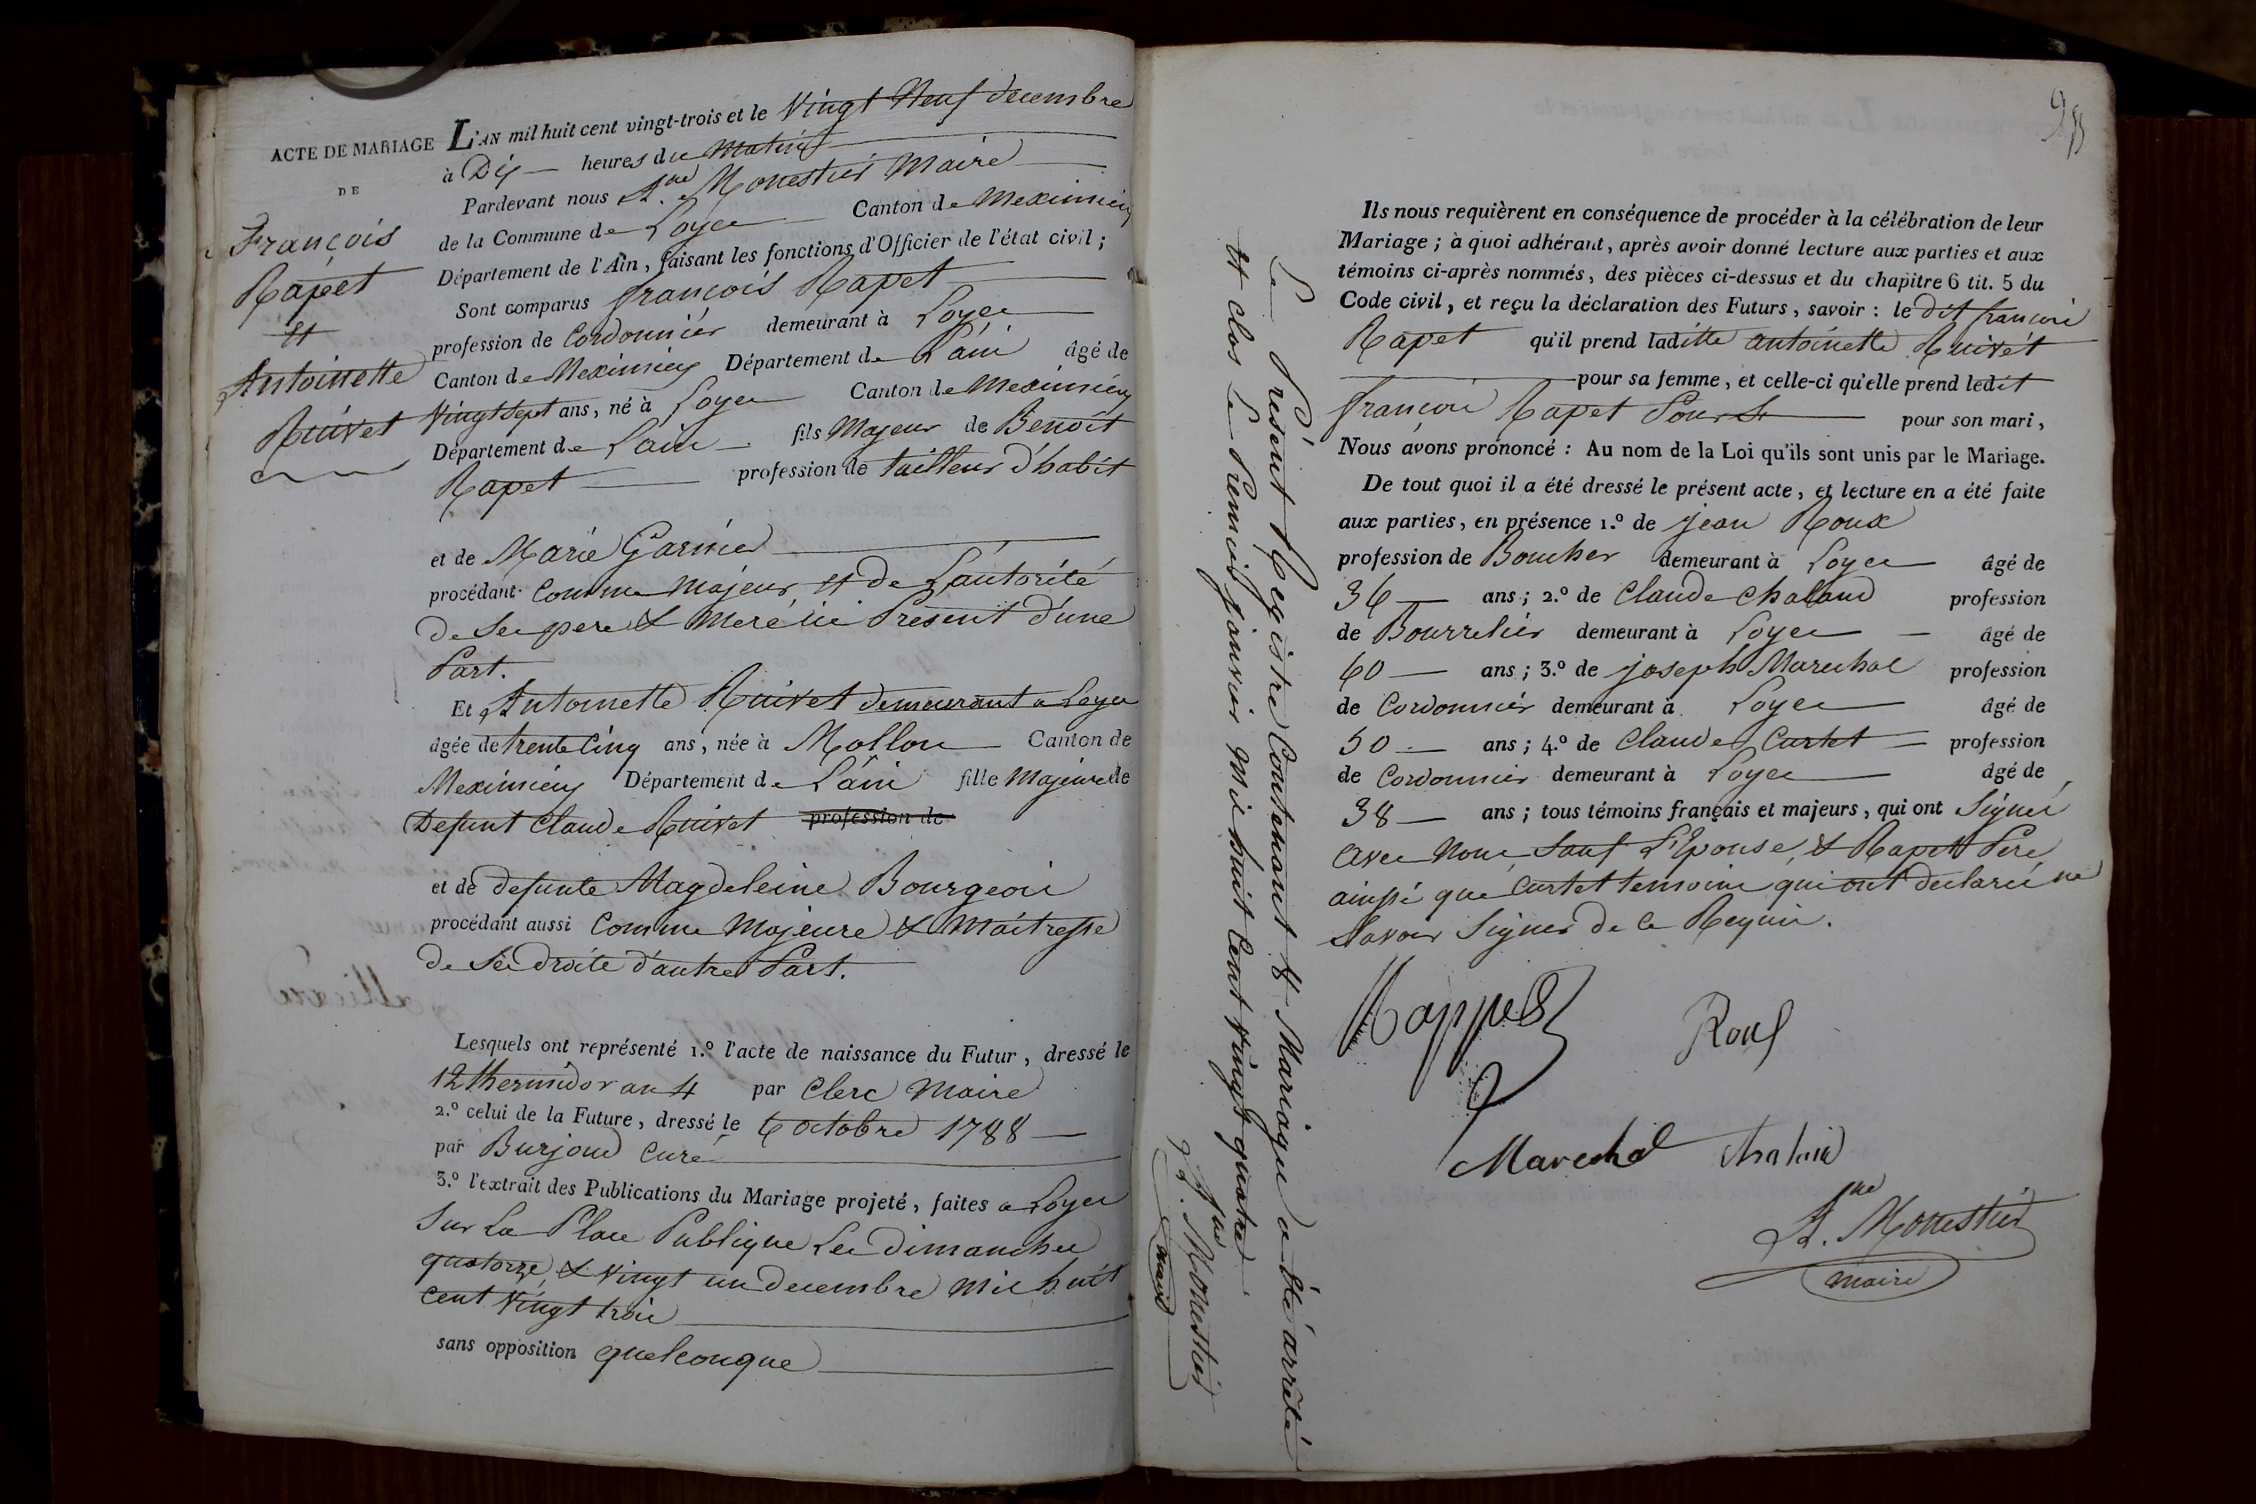 ACTE DE MARIAGE
DE
François
Rapet
et
Antoinette
Ruivet
L'AN mil huit cent vingt-trois et le Vingt Neuf decembre
à Dix heures du Matin
Pardevant nous A.ne Monestier Maire
de la Commune de Loyes Canton de Meximieux
Département de l'Ain, faisant les fonctions d'Officier de l'état civil ;
Sont comparus françois Rapet
profession de Cordonnier demeurant à Loyes
Canton de Meximieux Département de L'ain âgé de
Vingt Sept ans, né à Loyes Canton de Meximieux
Département de L'ain fils Majeur de Benoît
Rapet profession de tailleur d'habit
et de Marie Garnier
procédant Comme Majeur et de L'autorité
de Ses pere & Mere ici Présent d'une
Part.
Et Antoinette Ruivet demeurant a Loyes
âgée de trente Cinq ans, née à Mollon Canton de
Meximieux Département de L'ain fille Majeure de
Defunt Claude Ruivet profession de
et de defunte Magdeleine Bourgeois
procédant aussi Comme Majeure & Maitresse
de Ses droits d'autre Part.
Lesquels ont représenté 1.º l'acte de naissance du Futur, dressé le
12 thermidor an 4 par Clerc Maire
2.º celui de la Future, dressé le 6 octobre 1788
par Burjoud Curé
3.º l'extrait des Publications du Mariage projeté, faites a Loyes
Sur La Place Publique Les dimanches
quatorze, & Vingt un decembre Mil huit
Cent Vingt trois
sans opposition quelconque
Le Présent Registre Contenant 18 Mariages a été arrêté
et clos Le Premier janvier Mil huit Cent Vingt quatre.
A.ne Monestier
maire
Ils nous requièrent en conséquence de procéder à la célébration de leur
Mariage ; à quoi adhérant, après avoir donné lecture aux parties et aux
témoins ci-après nommés, des pièces ci-dessus et du chapitre 6 tit. 5 du
Code civil, et reçu la déclaration des Futurs, savoir : le dit françois
Rapet qu'il prend laditte antoinette Ruivet
pour sa femme, et celle-ci qu'elle prend ledit
françois Rapet Pour pour son mari,
Nous avons prononcé : Au nom de la Loi qu'ils sont unis par le Mariage.
De tout quoi il a été dressé le présent acte, et lecture en a été faite
aux parties, en présence 1.º de jean Roux
profession de Boucher demeurant à Loyes âgé de
36 ans ; 2.º de Claude Chaland profession
de Bourrelier demeurant à Loyes âgé de
60 ans ; 3.º de joseph Marechal profession
de Cordonnier demeurant à Loyes âgé de
50 ans ; 4.º de Claude Curtet profession
de Cordonnier demeurant à Loyes âgé de
38 ans ; tous témoins français et majeurs, qui ont Signés
avec Nous Sauf L'Epouse, & Rapet Père
ainssi que Curtet temoins qui ont declarés ne
Savoir Signer de ce Requis.
Rappet
Roux
Marechal
A.ne Monestier
maire